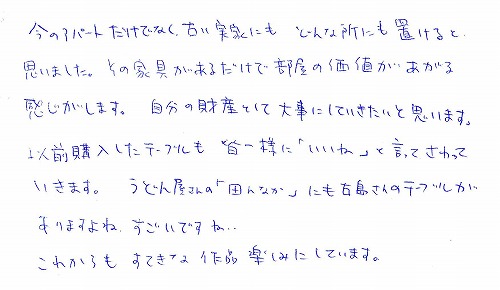 今のアパートだけでなく、古い実家にも どんな所にも置けると
思いました。その家具があるだけで部屋の価値があがる
感じがします。 自分の財産として大事にしていきたいと思います。
以前購入したテーブルも 皆一様に「いいね」と言ってさわって
いきます。 うどん屋さんの「田んなか」にも古島さんのテーブルが
ありますよね、すごいですね…
これからも すてきな作品楽しみにしています。